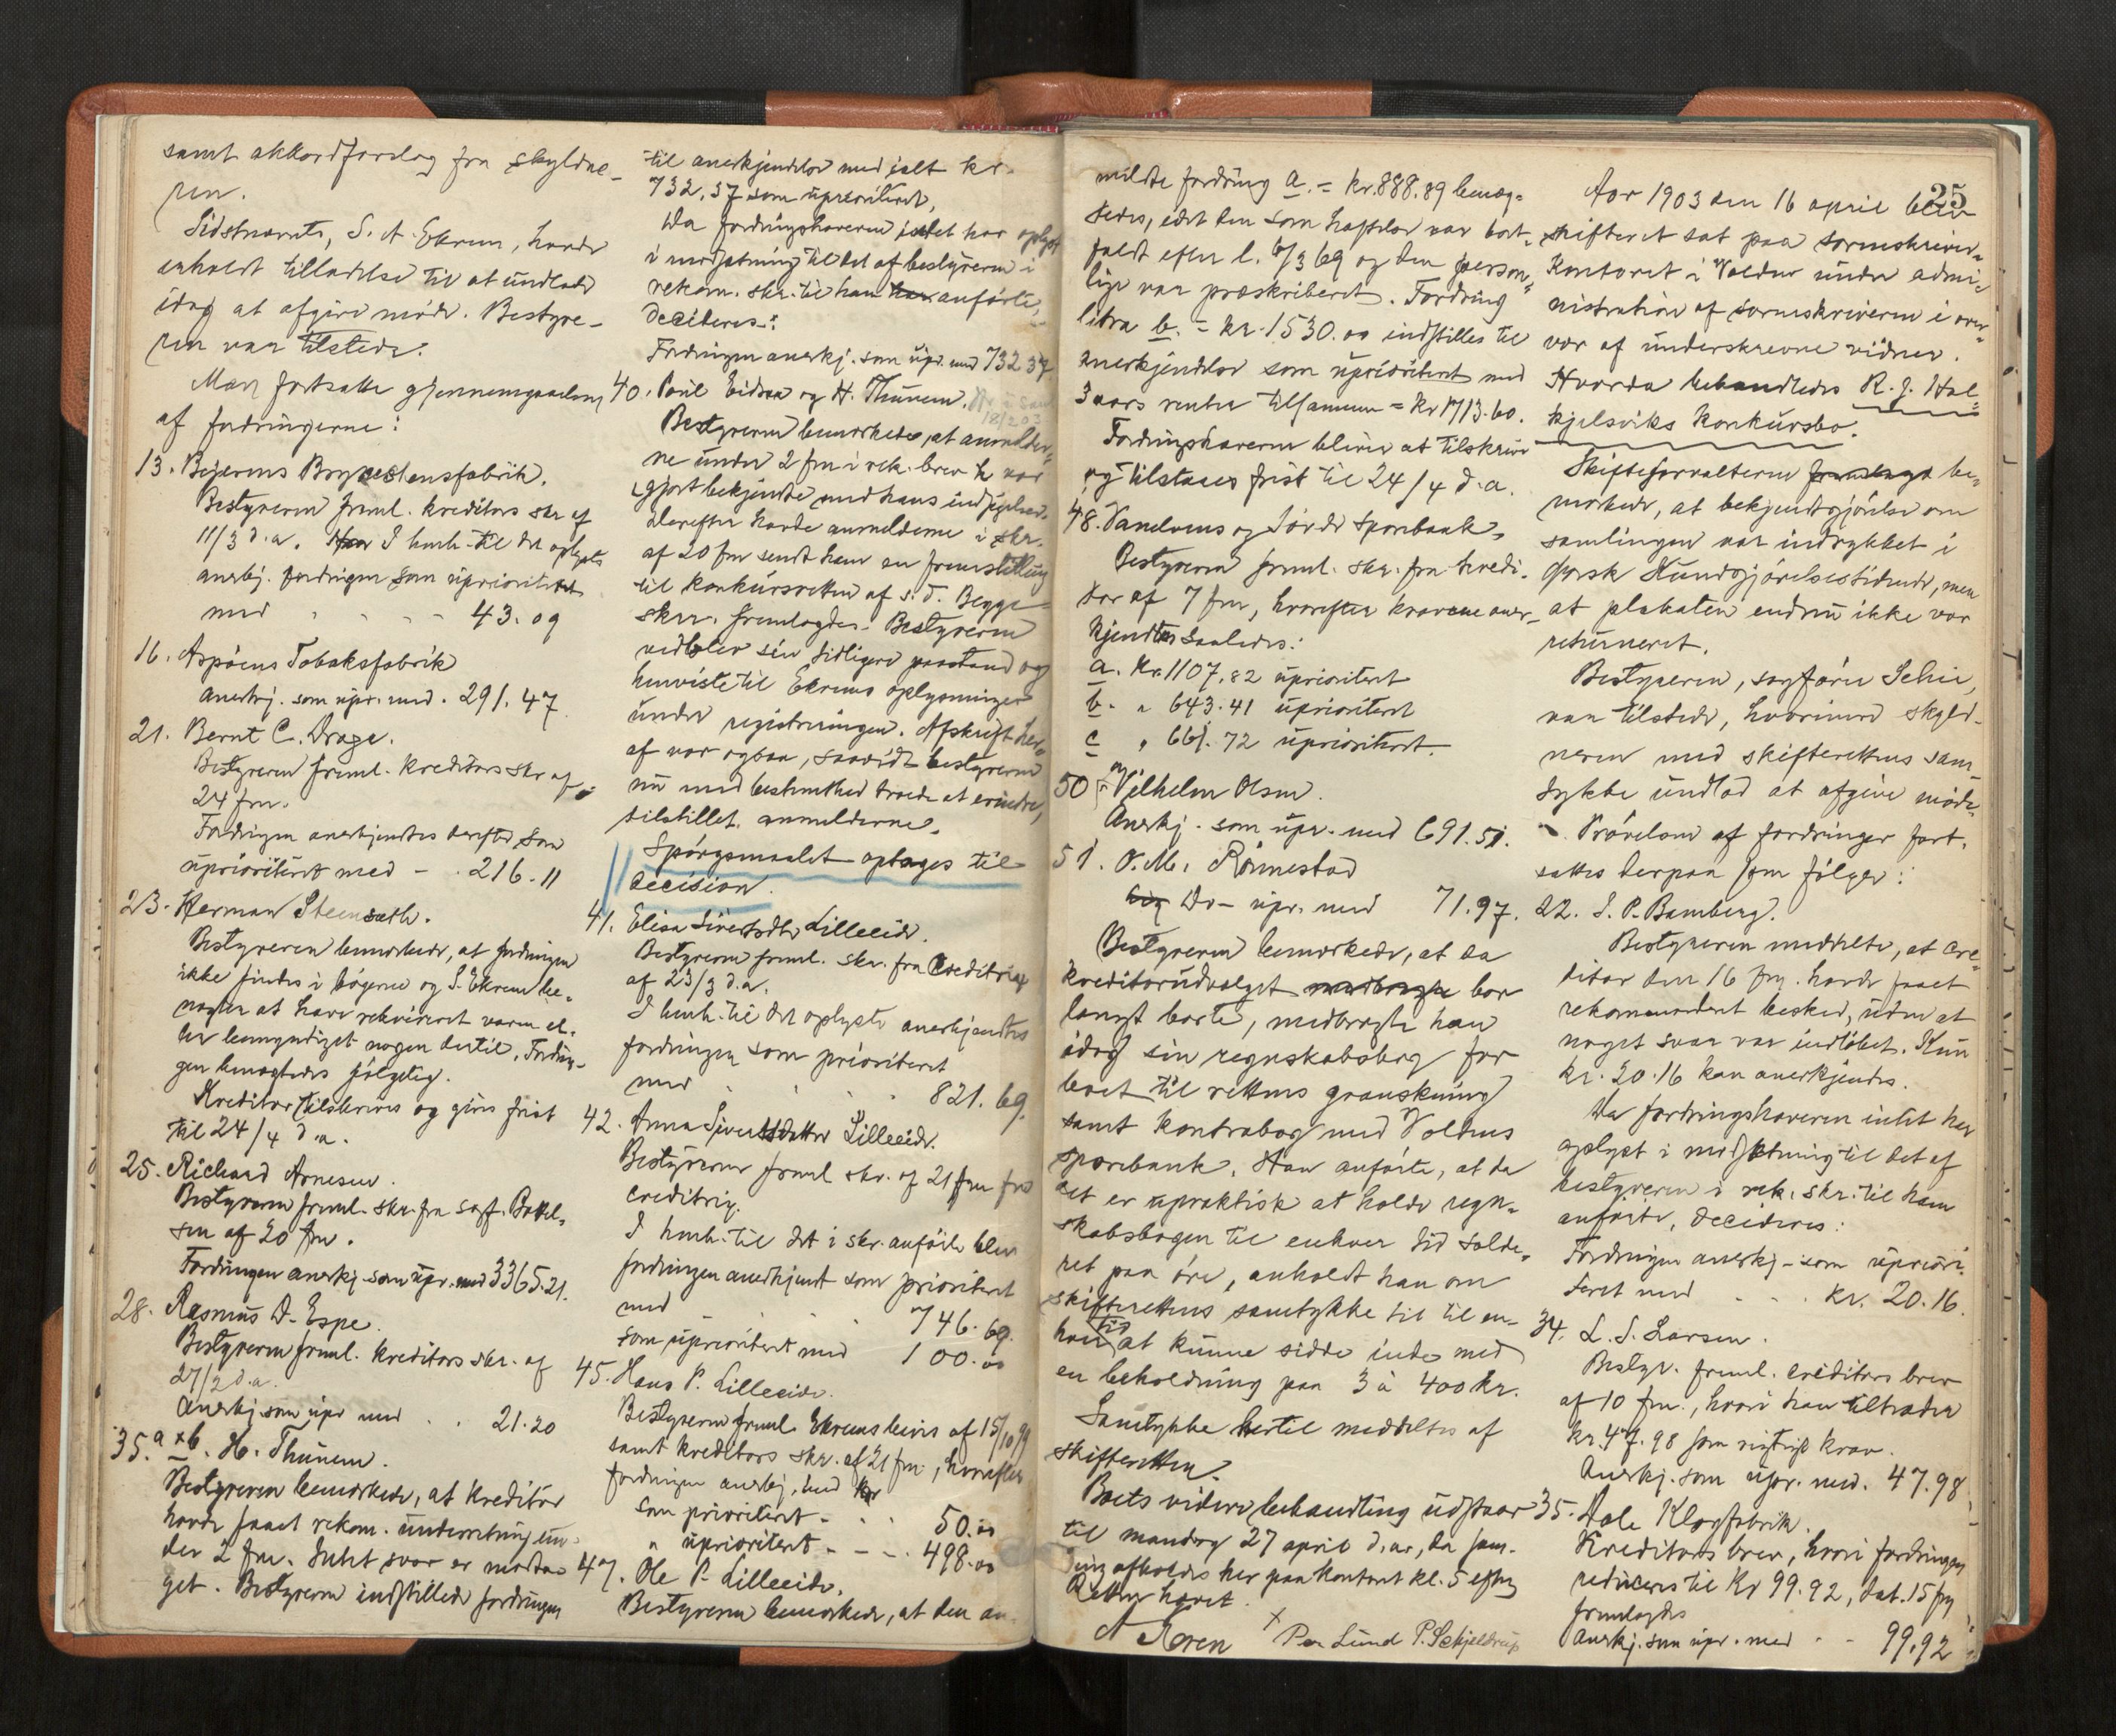 samt akkordforslag fra skyldne-
ren.
Sidstnævnte, S. A. Ekrem, havde
anholdt tilladelse til at undlade
idag at afgive møde. Bestyre-
ren var tilstede.
Man fortsatte gjennemgaaelsen
af fordringerne:
13. Beyerens
Bestyreren freml. kreditors skr. af
11/3 d.a. I henh. til det oplyste
anerkj. fordringen som uprioriteret
med - - - 43.09
16. Aspöens Tobaksfabrik
anerkj. som upr. med . 291.47
21. Bernt C. Drage.
Bestyreren freml. kreditors skr. af
24 fm.
Fordringen anerkjendtes derefter som
uprioriteret med - . 216.11
23. Herman Steensæth.
Bestyreren bemærkede, at fordringen
ikke findes i bøgerne og S. Ekrem be-
nægter at have rekvireret varen el-
ler bemyndiget nogen dertil. Fordrin-
gen benægtedes følgelig.
Kreditor tilskrives og gives frist
til 24/4 d.a.
25. Richard Arnesen.
Bestyreren freml. skr. fra sagf.
sen af 20 fm.
Fordringen anerkj. som upr. med 3365.21.
28. Rasmus D. Espe.
Bestyreren freml. kreditors skr. af
27/2 d.a.
Anerkj. som upr med . . 21.20
35. a & b. H. Thunem.
Bestyreren bemærkede, at kreditor
havde faaet rekom. underretning un-
der 2 fm. Intet svar er modta-
get. Bestyreren indstillede fordringen
til anerkjendelse med ialt kr.
732.37 som uprioriteret.
Da fordringshaveren intet har oplyst
i modsætning til det af bestyreren i
rekom. skr. til ham anførte,
decideres:
Fordringen anerkj. som upr. med 732.37
40. Poul Eidsaa og H. Thunem.
Bestyreren bemærkede, at anmelder-
ne under 2 fm i rek. brev h var
gjort bekjendte med hans indsigelser.
Derefter havde anmelderne i skr.
af 20 fm sendt ham en fremstilling
til konkursretten af s. d. Begge
skrr. fremlagdes. Bestyreren
vedblev sin tidligere paastand og
henviste til Ekrems oplysninger
under registreringen. Afskrift her-
af var ogsaa, saavidt bestyreren
nu med bestemthed troede at erindre,
tilstillet anmelderne.
Spørgsmaalet optages til
decision.
41. Elisa Sivertsdtr Lilleeide.
Bestyreren freml. skr. fra Creditrix
af 23/3 d.a.
I henh. til det oplyste anerkjendtes
fordringen som prioriteret
med . . . . 821.69.
42. Anna Sivertsdatter Lilleeide.
Bestyreren freml skr. af 21 fm fra
Creditrix.
I henh. til det i skr. anførte blev
fordringen anerkjendt som prioriteret
med 746.69.
som uprioriteret med 100.00
45. Hans P. Lilleeide.
Bestyreren freml. Ekrems bevis af 15/10 99
samt kreditors skr. af 21 fm., hvorefter
fordringen anerkj. med kr
som prioriteret - . . 50.00
" uprioriteret - - - . 498.00
47. Ole P. Lilleeide.
Bestyreren bemærkede, at den an-
meldte fordring a. = kr. 888.89 benæg-
tedes, idet den som heftelse var bort-
faldt efter l. 6/3 69 og den person-
lige var præskriberet. Fordring
litra b. = kr. 1530.00 indstilles til
anerkjendelse som uprioriteret med
3 aars renter tilsammen = kr 1713.60.
Fordringshaveren bliver at tilskrive
og tilstaaes frist til 24/4 d.a.
48. Vanelvens og Sørde Sparebank.
Bestyreren freml. skr. fra kredi-
tor af 7 fm, hvorefter kravene aner-
kjendtes saaledes:
a. Kr. 1107.82 uprioriteret
b. " 643.41 uprioriteret
c " 661.72 uprioriteret.
50. Vilhelm Olsen.
Anerkj. som upr. med 691.51.
51. O. M. Rønnestad
Do - upr. med 71.97.
Bestyreren bemærkede, at da
kreditorudvalget bor
langt borte, medbragte han
idag sin regnskabsbog for
boet til rettens granskning
samt kontrabog med Voldens
sparebank. Han anførte, at da
det er upraktisk at holde regn-
skabsbogen til enhver tid salde-
ret paa øre, anholdt han om
skifterettens samtykke til til en-
hver tid at kunne sidde inde med
en beholdning paa 3 à 400 kr.
Samtykke hertil meddeltes af
skifteretten.
Boets videre behandling udstaar
til mandag 27 april d. a., da sam-
ling afholdes her paa kontoret kl. 5 eftm
Retten hævet.
Per Lund P. Schjeldrup
25
Aar 1903 den 16 april blev
skifteret sat paa sorenskriver-
kontoret i Volden under admi-
nistration af sorenskriveren i over-
vær af underskrevne vidner.
Hvorda behandledes R. J. Hal-
kjelsviks konkursbo.
Skifteforvalteren be-
mærkede, at bekjendtgjørelse om
samlingen var indrykket i
Norsk Kundgjørelsestidende, men
at plakaten endnu ikke var
returneret.
Bestyreren, sagfører Schie,
var tilstede, hvorimod skyld-
neren med skifterettens sam-
tykke undlod at afgive møde.
Prøvelsen af fordringer fort-
sattes derpaa som følger:
22. S. P. Bamberg.
Bestyreren meddelte, at cre-
ditor den 16 fm. havde faaet
rekommanderet besked, uden at
noget svar var indløbet. Kun
kr. 20.16 kan anerkjendes.
Da fordringshaveren intet har
oplyst i modsætning til det af
bestyreren i rek. skr. til ham
anførte, decideres:
Fordringen anerkj. som upriori-
teret med - . . kr. 20.16.
34. L. S. Larsen.
Bestyr. freml. creditors brev
af 10 fm., hvori han tiltræder
kr. 47.98 som rigtigt krav.
Anerkj. som upr. med. 47.98
35. Aale Klogfabrik.
Kreditors brev, hvori fordringen
reduceres til Kr 99.92, dat. 15 fm
fremlagdes
Anerkj. som upr. med - - 99.92